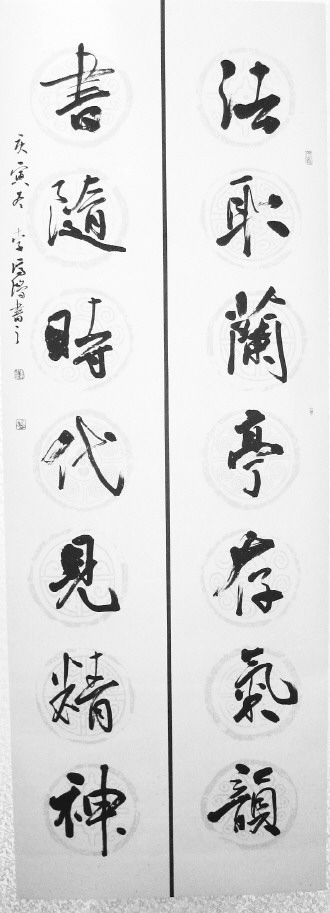 法取蘭亭存氣韻
書隨時代見精神
庚寅冬 李 書之